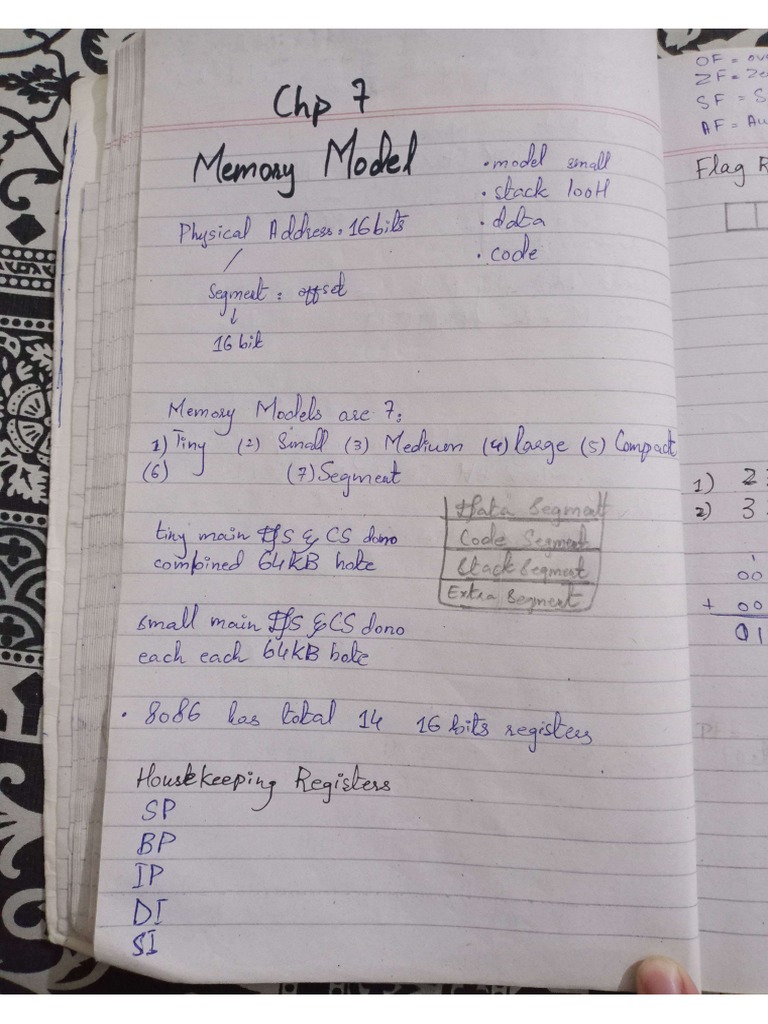 Chp 7
Memory Model
• model small
• stack 100H
• data
• code
Physical Address: 16 bits
Segment : offset
16 bit
Memory Models are 7:
1) Tiny (2) Small (3) Medium (4) large (5) Compact
(6) (7) Segment
Data Segment
Code Segment
Stack Segment
Extra Segment
tiny main DS & CS dono
combined 64KB hote
small main DS & CS dono
each each 64KB hote
• 8086 has total 14 16 bits registers
Housekeeping Registers
SP
BP
IP
DI
SI
OF = ov
ZF = Ze
SF = S
AF = Au
Flag R
1) 2
2) 3
1
00
+ 00
01